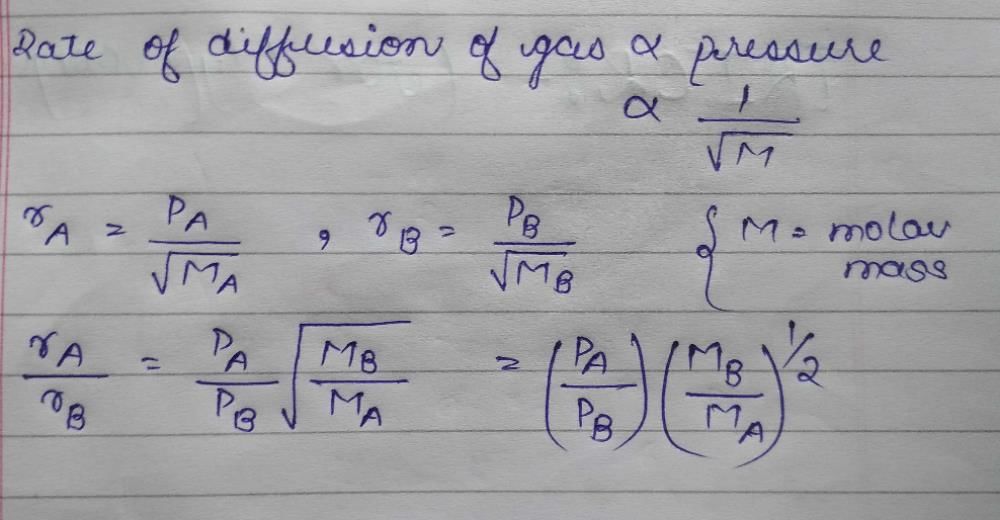 Rate of diffusion of gas ∝ pressure
∝ 1/√M
r_A = P_A/√M_A , r_B = P_B/√M_B { M = molar mass
r_A/r_B = P_A/P_B √(M_B/M_A) = (P_A/P_B) (M_B/M_A)^1/2